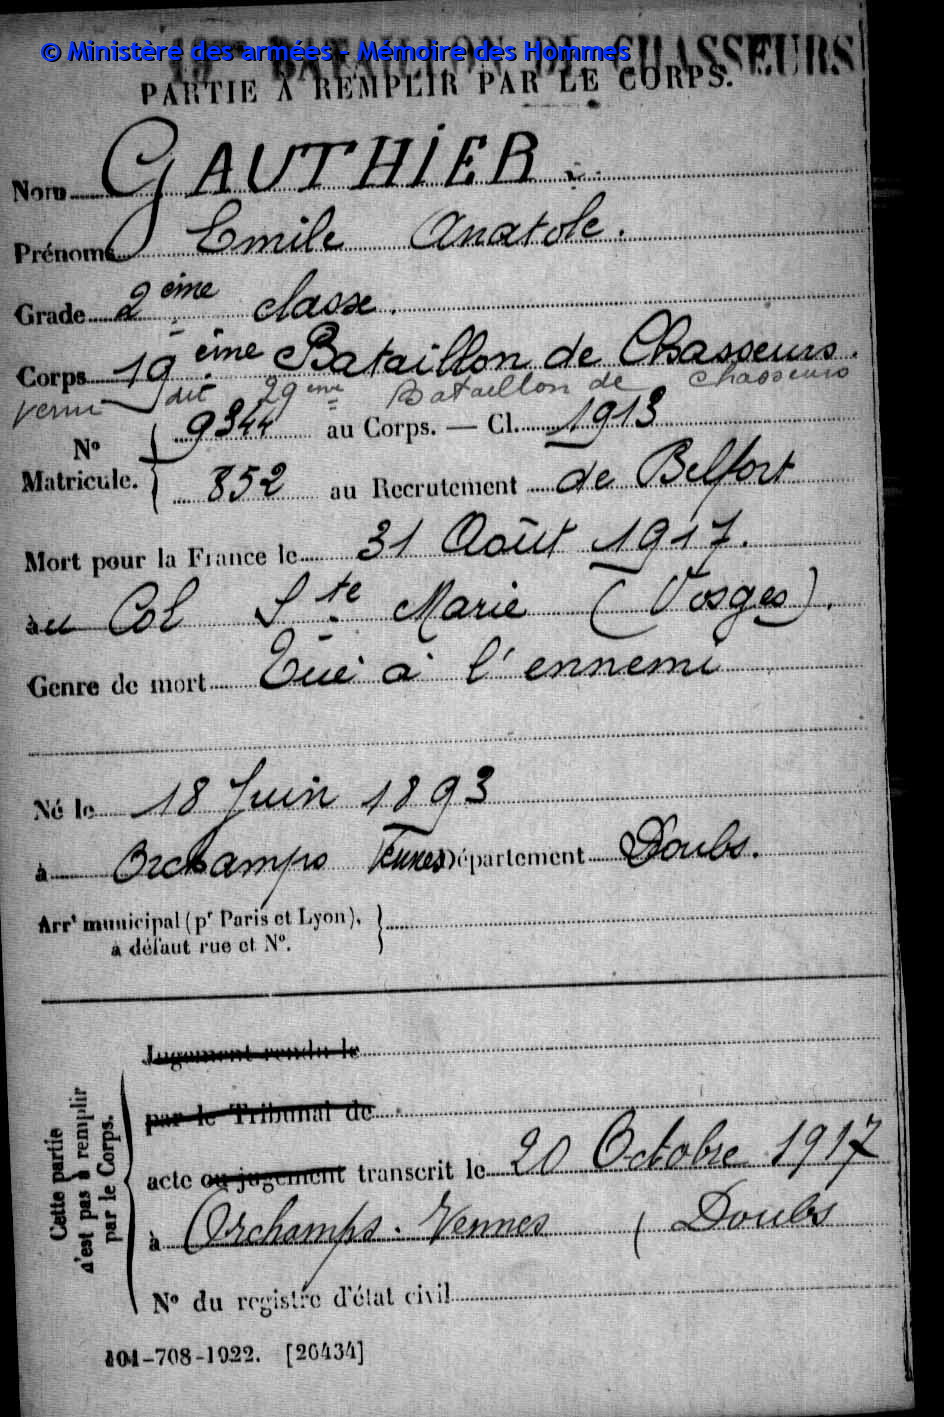 © Ministère des armées - Mémoire des Hommes
19 BATAILLON DE CHASSEURS
PARTIE À REMPLIR PAR LE CORPS.
Nom GAUTHIER
Prénoms Emile Anatole.
Grade 2ème classe.
Corps 19ème Bataillon de Chasseurs.
venu dit 29ème Bataillon de chasseurs
N° Matricule. { 9344 au Corps. — Cl. 1913
852 au Recrutement de Belfort
Mort pour la France le 31 Août 1917.
au Col Ste Marie (Vosges).
Genre de mort Tué à l'ennemi
Né le 18 Juin 1893
à Orchamps Vennes Département Doubs.
Arrt municipal (pr Paris et Lyon), }
à défaut rue et N°.
Cette partie n'est pas à remplir par le Corps.
Jugement rendu le
par le Tribunal de
acte ou jugement transcrit le 20 Octobre 1917
à Orchamps-Vennes (Doubs
N° du registre d'état civil
101-708-1922. [26434]